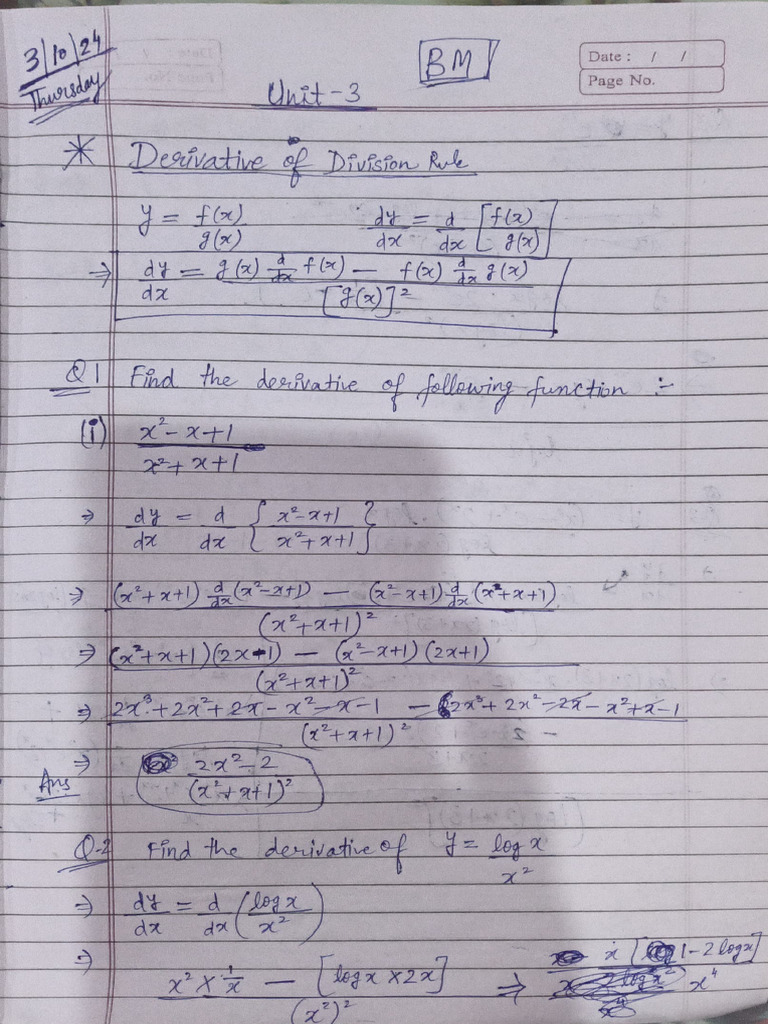 3/10/24
Thursday
BM
Date : / /
Page No.
Unit-3
* Derivative of Division Rule
y = f(x)/g(x) dy/dx = d/dx [f(x)/g(x)]
⇒ dy/dx = g(x) d/dx f(x) - f(x) d/dx g(x) / [g(x)]²
Q1 Find the derivative of following function :-
(i) x²-x+1 / x²+x+1
⇒ dy/dx = d/dx { x²-x+1 / x²+x+1 }
⇒ (x²+x+1) d/dx (x²-x+1) - (x²-x+1) d/dx (x²+x+1) / (x²+x+1)²
⇒ (x²+x+1)(2x-1) - (x²-x+1)(2x+1) / (x²+x+1)²
⇒ 2x³+2x²+2x-x²-x-1 - 2x³+2x²-2x-x²+x-1 / (x²+x+1)²
Ans ⇒ 2x²-2 / (x²+x+1)²
Q-2 Find the derivative of y = log x / x²
⇒ dy/dx = d/dx (log x / x²)
⇒ x² × 1/x - [log x × 2x] / (x²)² ⇒ x [1-2 log x] / x⁴